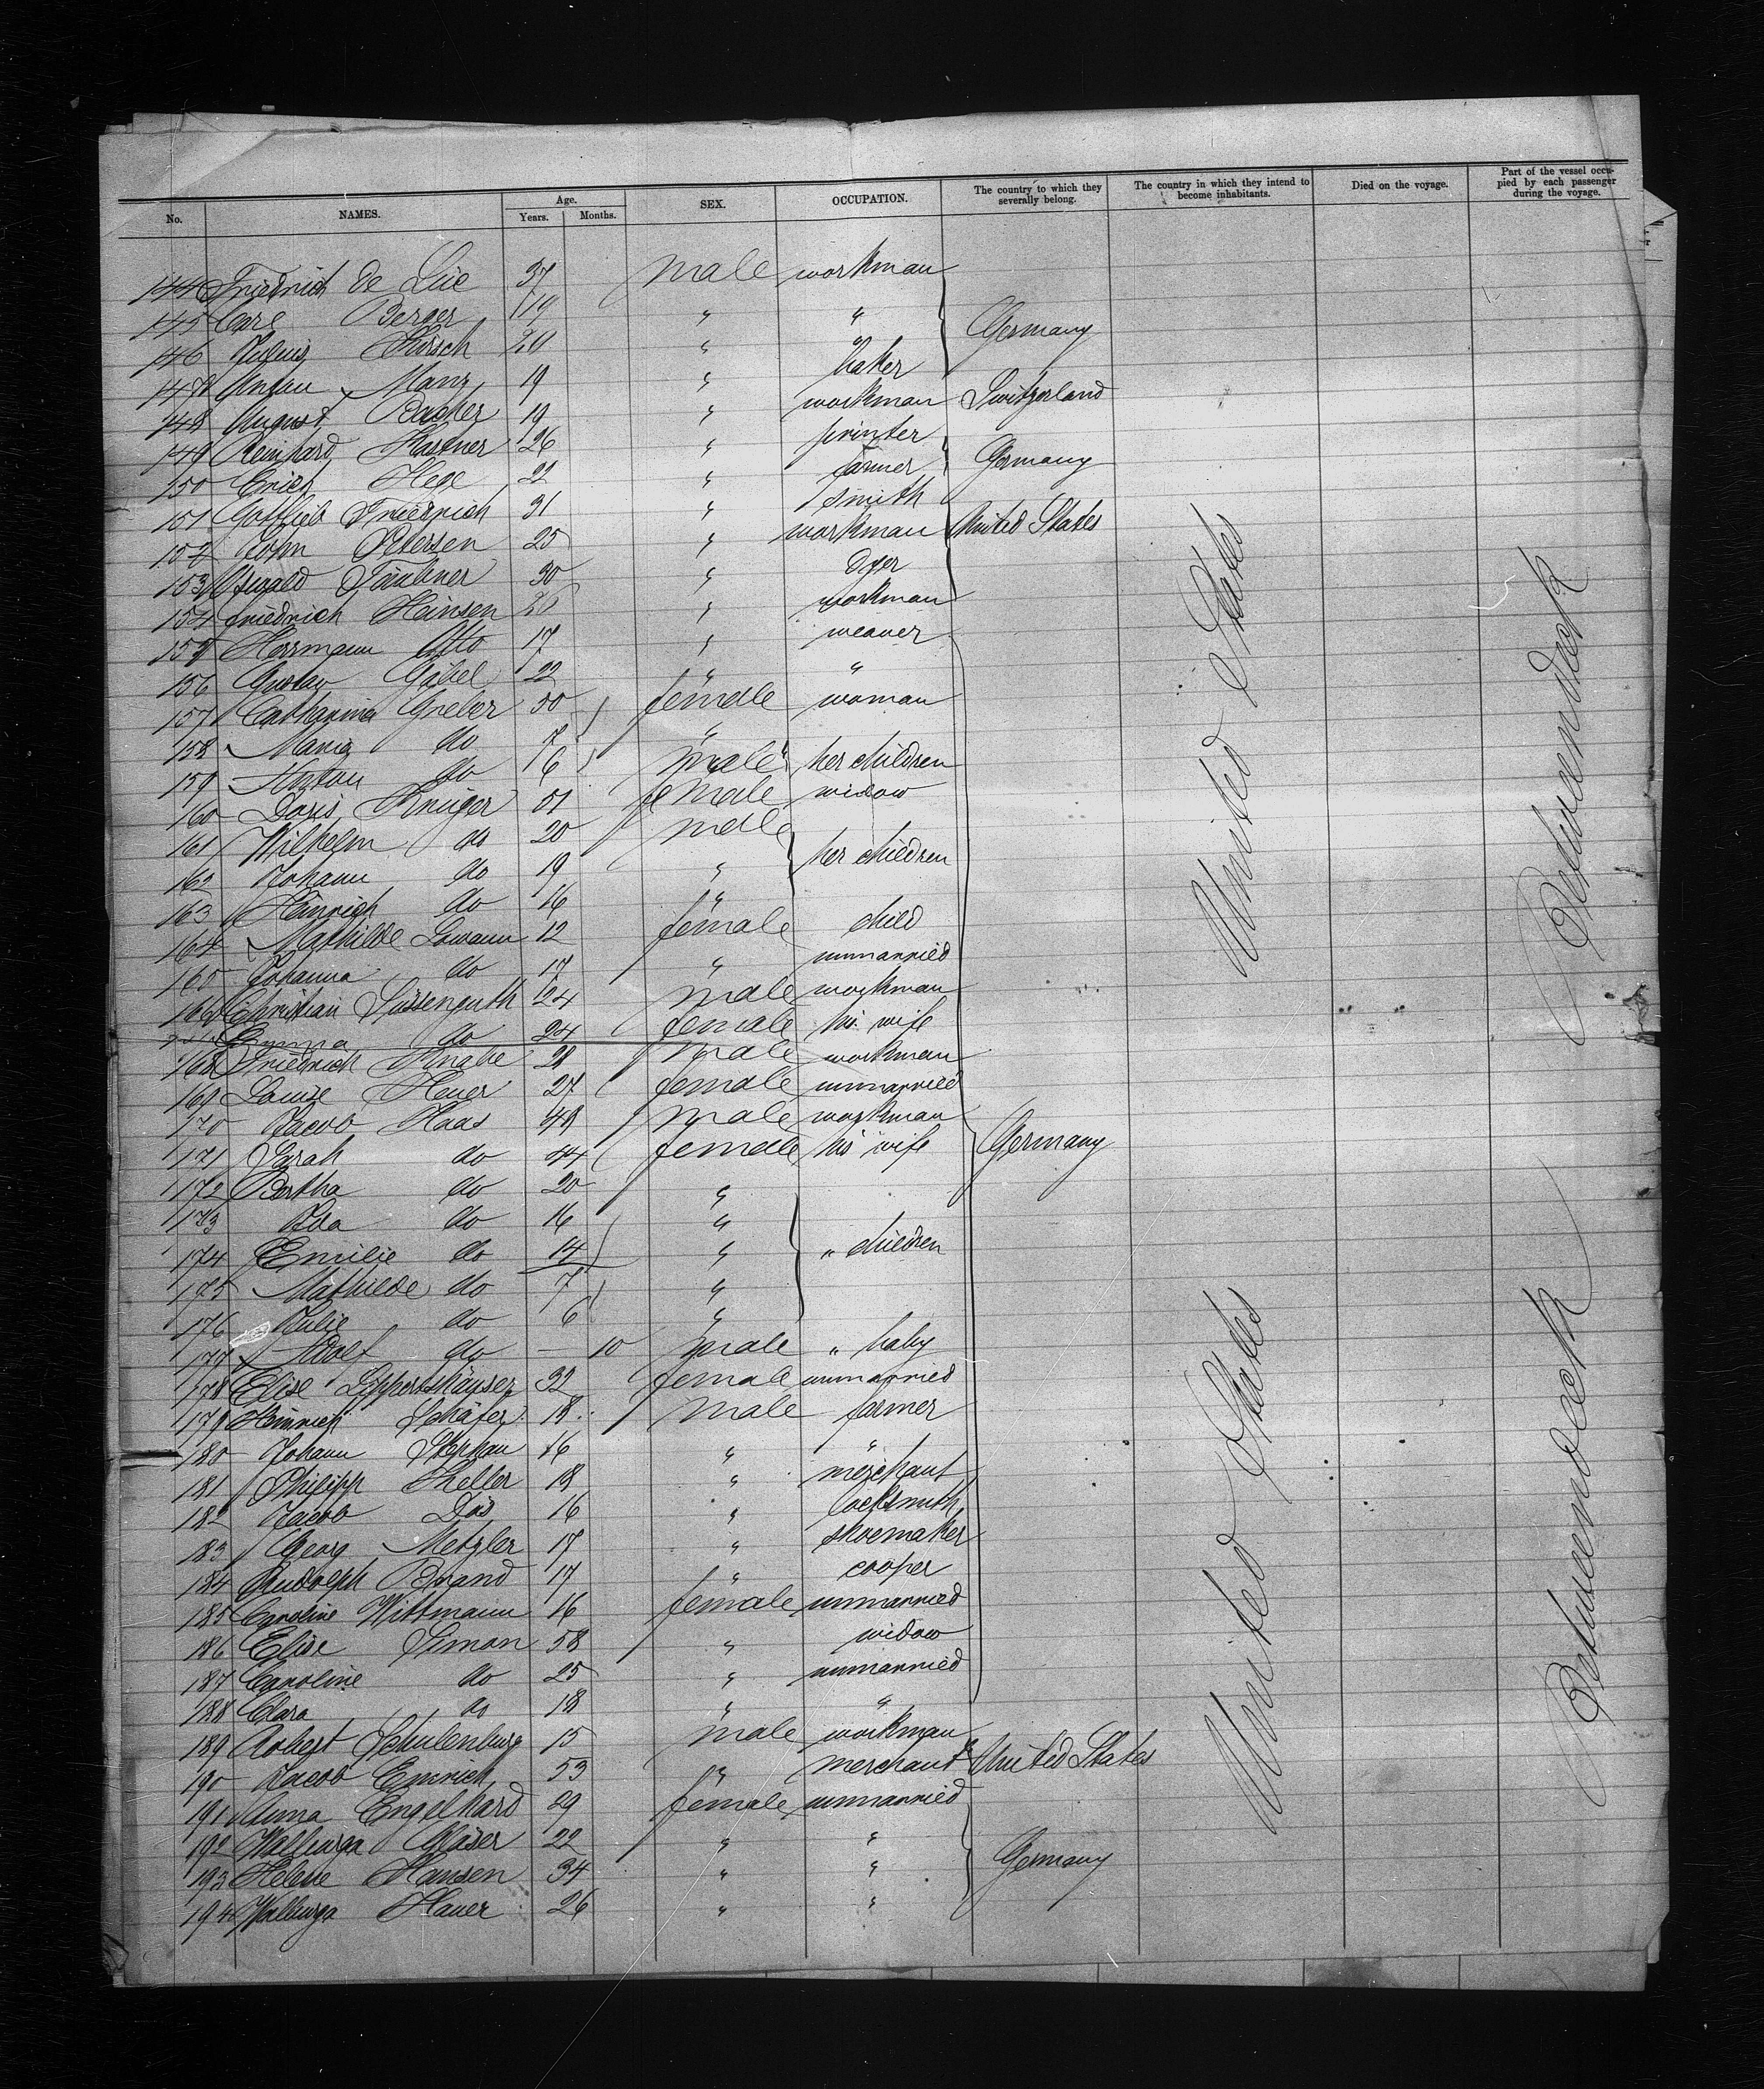 No. NAMES. Age. Years. Months. SEX. OCCUPATION. The country to which they severally belong. The country in which they intend to become inhabitants. Died on the voyage. Part of the vessel occupied by each passenger during the voyage.
144 Friedrich de Lüe 37 male workman
145 Carl Berger 19 " "
146 Julius Hirsch 20 " " Germany
147 Anton Manz 19 " baker
148 August Bacher 19 " workman Switzerland
149 Reinhard Kastner 26 " printer
150 Erich Hege 22 " farmer Germany
151 Gottlieb Friedrich 31 " smith
152 John Petersen 25 " workman United States
153 Oswald Täubner 30 " dyer
154 Friedrich Heinsen 26 " workman
155 Herrmann Otto 17 " weaver
156 Gustav Göbel 22 " "
157 Catharina Greber 30 female woman
158 Maria do 7 "
159 Anton do 6 male " her children
160 Doris Krüger 51 female widow
161 Wilhelm do 20 male
162 Johann do 19 " her children
163 Heinrich do 16 "
164 Mathilde Lowann 12 female child
165 Johanna do 17 " unmarried
166 Christian Süssenguth 24 male workman
Emma do 24 female his wife
168 Friedrich Knabe 28 male workman
169 Louise Heuer 27 female unmarried
170 Jacob Haas 48 male workman
171 Sarah do 44 female his wife Germany
172 Bertha do 20 "
173 Ida do 16 "
174 Emilie do 14 " " children
175 Mathilde do 7 "
176 Julie do 6 "
177 Adolf do — 10 male " baby
178 Elise Lippertshäuser 32 female unmarried
179 Heinrich Schäfer 18 male farmer
180 Johann Stephan 16 " "
181 Philipp Heller 18 " merchant
182 Jacob Dös 16 " locksmith
183 Georg Metzler 17 " shoemaker
184 Rudolph Brand 17 " cooper
185 Caroline Wittmann 16 female unmarried
186 Elise Simon 58 " widow
187 Caroline do 25 " unmarried
188 Clara do 18 " "
189 Robert Schulenburg 15 male workman
190 Jacob Emrich 53 " merchant United States
191 Anna Engelhard 29 female unmarried
192 Walburga Gläser 22 " "
193 Helene Hansen 34 " " Germany
194 Walburga Hauer 26 " "
United States
United States
Betweendeck
Betweendeck